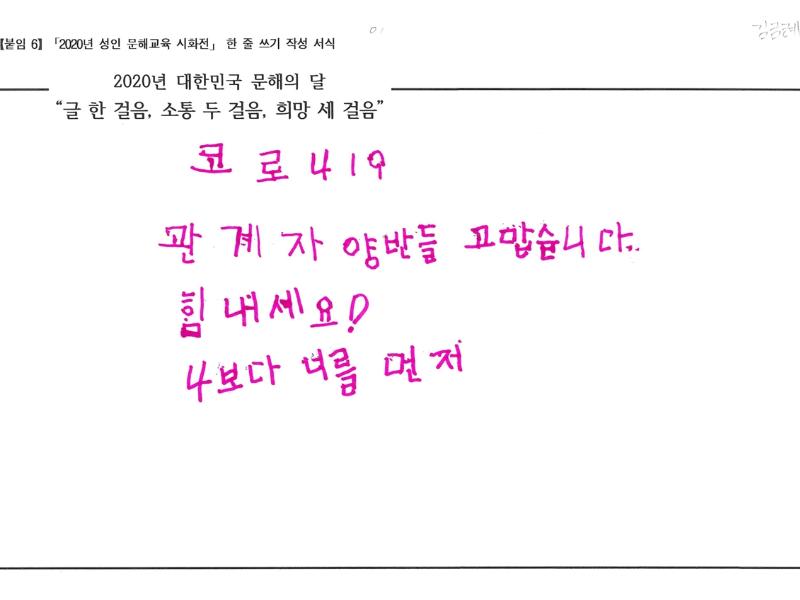 【붙임 6】 「2020년 성인 문해교육 시화전」 한 줄 쓰기 작성 서식
2020년 대한민국 문해의 달
“글 한 걸음, 소통 두 걸음, 희망 세 걸음”
코로나19
관계자 양반들 고맙습니다.
힘내세요!
나보다 너를 먼저